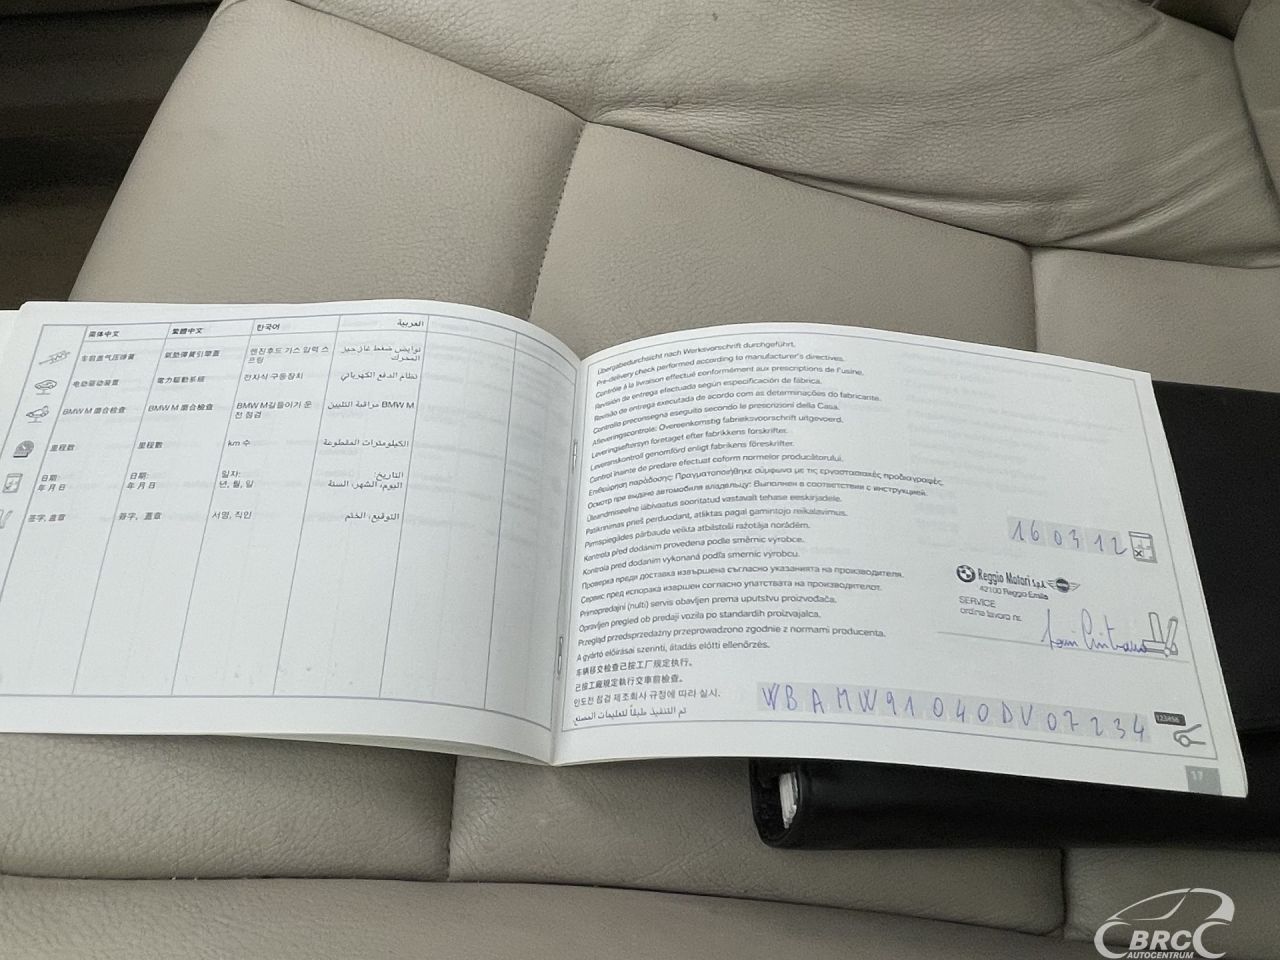 简体中文 繁體中文 한국어 العربية
车前盖气压弹簧 氣動彈簧引擎蓋 엔진후드 가스 압력 스프링 نوابض ضغط غاز حيز المحرك
电动驱动装置 電力驅動系統 전자식 구동장치 نظام الدفع الكهربائي
BMW M 磨合检查 BMW M 磨合檢查 BMW M길들이기 운전 점검 BMW M مراقبة التليين
里程数 里程數 km 수 الكيلومترات المقطوعة
日期: 日期: 일자: التاريخ:
年 月 日 年 月 日 년, 월, 일 اليوم، الشهر، السنة
签字, 盖章 簽字, 蓋章 서명, 직인 التوقيع، الختم
Übergabedurchsicht nach Werksvorschrift durchgeführt.
Pre-delivery check performed according to manufacturer's directives.
Contrôle à la livraison effectué conformément aux prescriptions de l'usine.
Revisión de entrega efectuada según especificación de fábrica.
Revisão de entrega executada de acordo com as determinações do fabricante.
Controllo preconsegna eseguito secondo le prescrizioni della Casa.
Afleveringscontrole: Overeenkomstig fabrieksvoorschrift uitgevoerd.
Leveringseftersyn foretaget efter fabrikkens forskrifter.
Leveranskontroll genomförd enligt fabrikens föreskrifter.
Control înainte de predare efectuat coform normelor producătorului.
Επιθεώρηση παράδοσης: Πραγματοποιήθηκε σύμφωνα με τις εργοστασιακές προδιαγραφές.
Осмотр при выдаче автомобиля владельцу: Выполнен в соответствии с инструкцией.
Üleandmiseelne läbivaatus sooritatud vastavalt tehase eeskirjadele.
Patikrinimas prieš perduodant, atliktas pagal gamintojo reikalavimus.
Pirmspiegādes pārbaude veikta atbilstoši ražotāja norādēm.
Kontrola před dodáním provedena podle směrnic výrobce.
Kontrola pred dodaním vykonaná podľa smerníc výrobcu.
Проверка преди доставка извършена съгласно указанията на производителя.
Сервис пред испорака извршен согласно упатствата на производителот.
Primopredajni (nulti) servis obavljen prema uputstvu proizvođača.
Opravljen pregled ob predaji vozila po standardih proizvajalca.
Przegląd przedsprzedażny przeprowadzono zgodnie z normami producenta.
A gyártó előírásai szerinti, átadás előtti ellenőrzés.
车辆移交检查已按工厂规定执行。
已按工廠規定執行交車前檢查。
인도전 점검 제조회사 규정에 따라 실시.
تم التنفيذ طبقاً لتعليمات المصنع
160312
Reggio Motori s.p.a.
42100 Reggio Emilia
SERVICE
ordine lavoro nr.
WBAMW91040DV07234
123456
17
BRC
AUTOCENTRUM